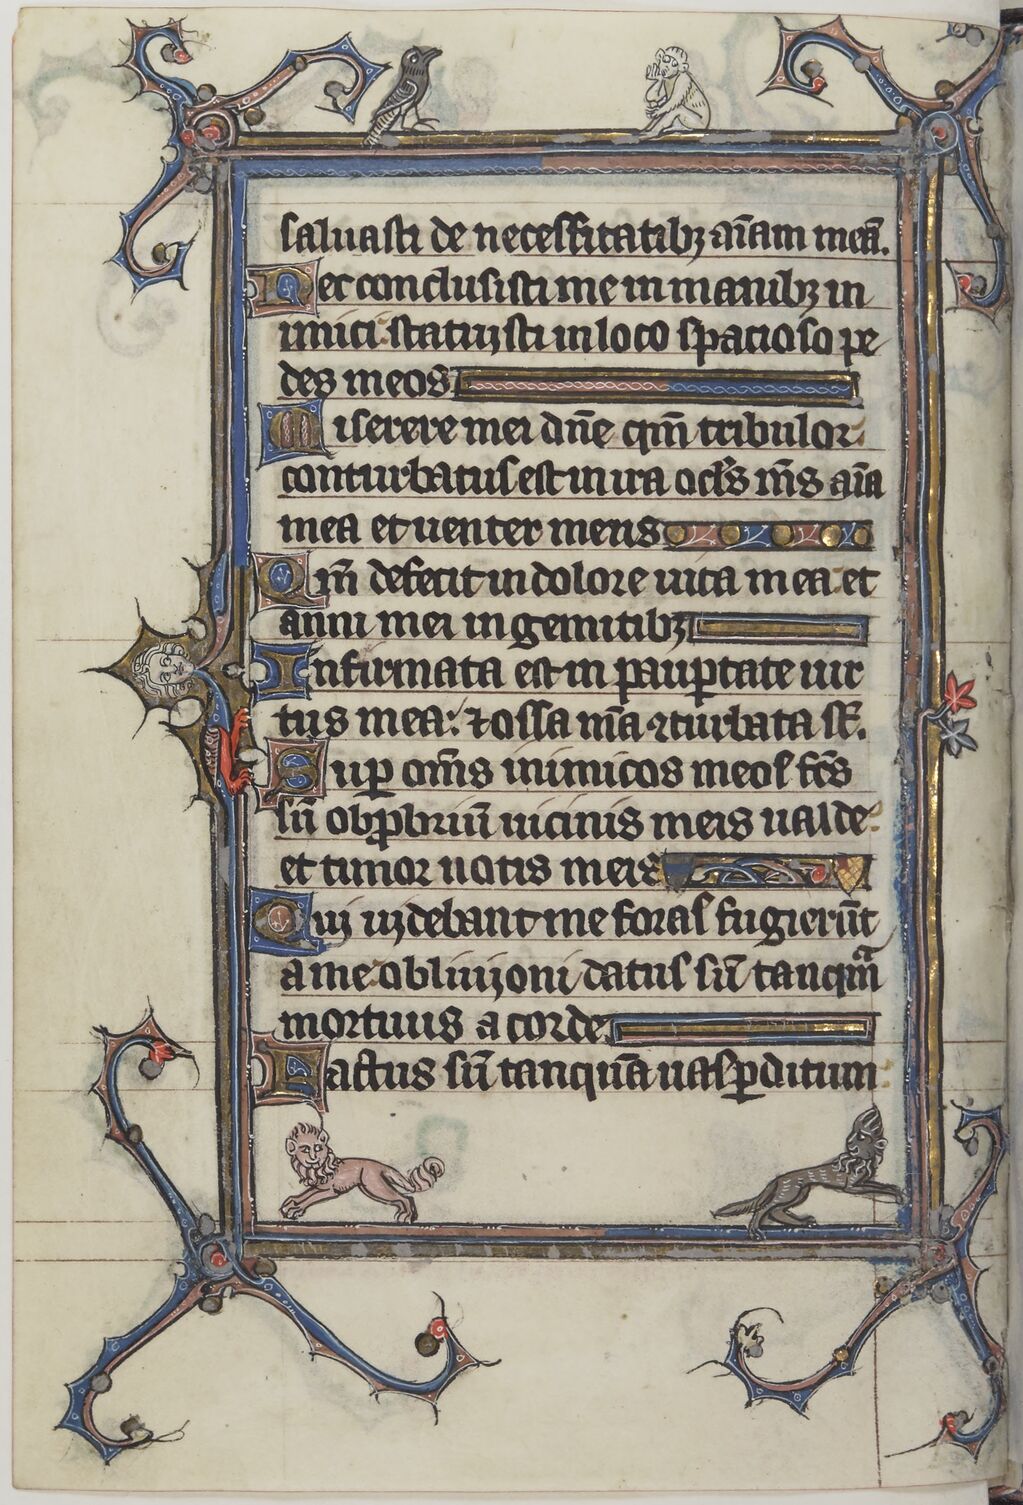 saluasti de necessitatibꝫ aīam meā.
Nec conclusisti me in manibꝫ in
imici: statuisti in loco spacioso pe
des meos
Miserere mei dn̄e qm̄ tribulor:
conturbatus est in ira oclṡ m̄s aīa
mea et uenter meus
Qm̄ defecit in dolore uita mea: et
anni mei in gemitibꝫ
Infirmata est in pauꝑtate uir
tus mea: ⁊ ossa m̄a ꝯturbata sт̄.
Suꝑ om̄s inimicos meos fc̄s
sū obꝓbriū uicinis meis ualde:
et timor notis meis
Qui uidebant me foras fugierūt
a me: obliuioni datus sū tanqᷓm
mortuus a corde
Factus sū tanquā uas ꝑditum